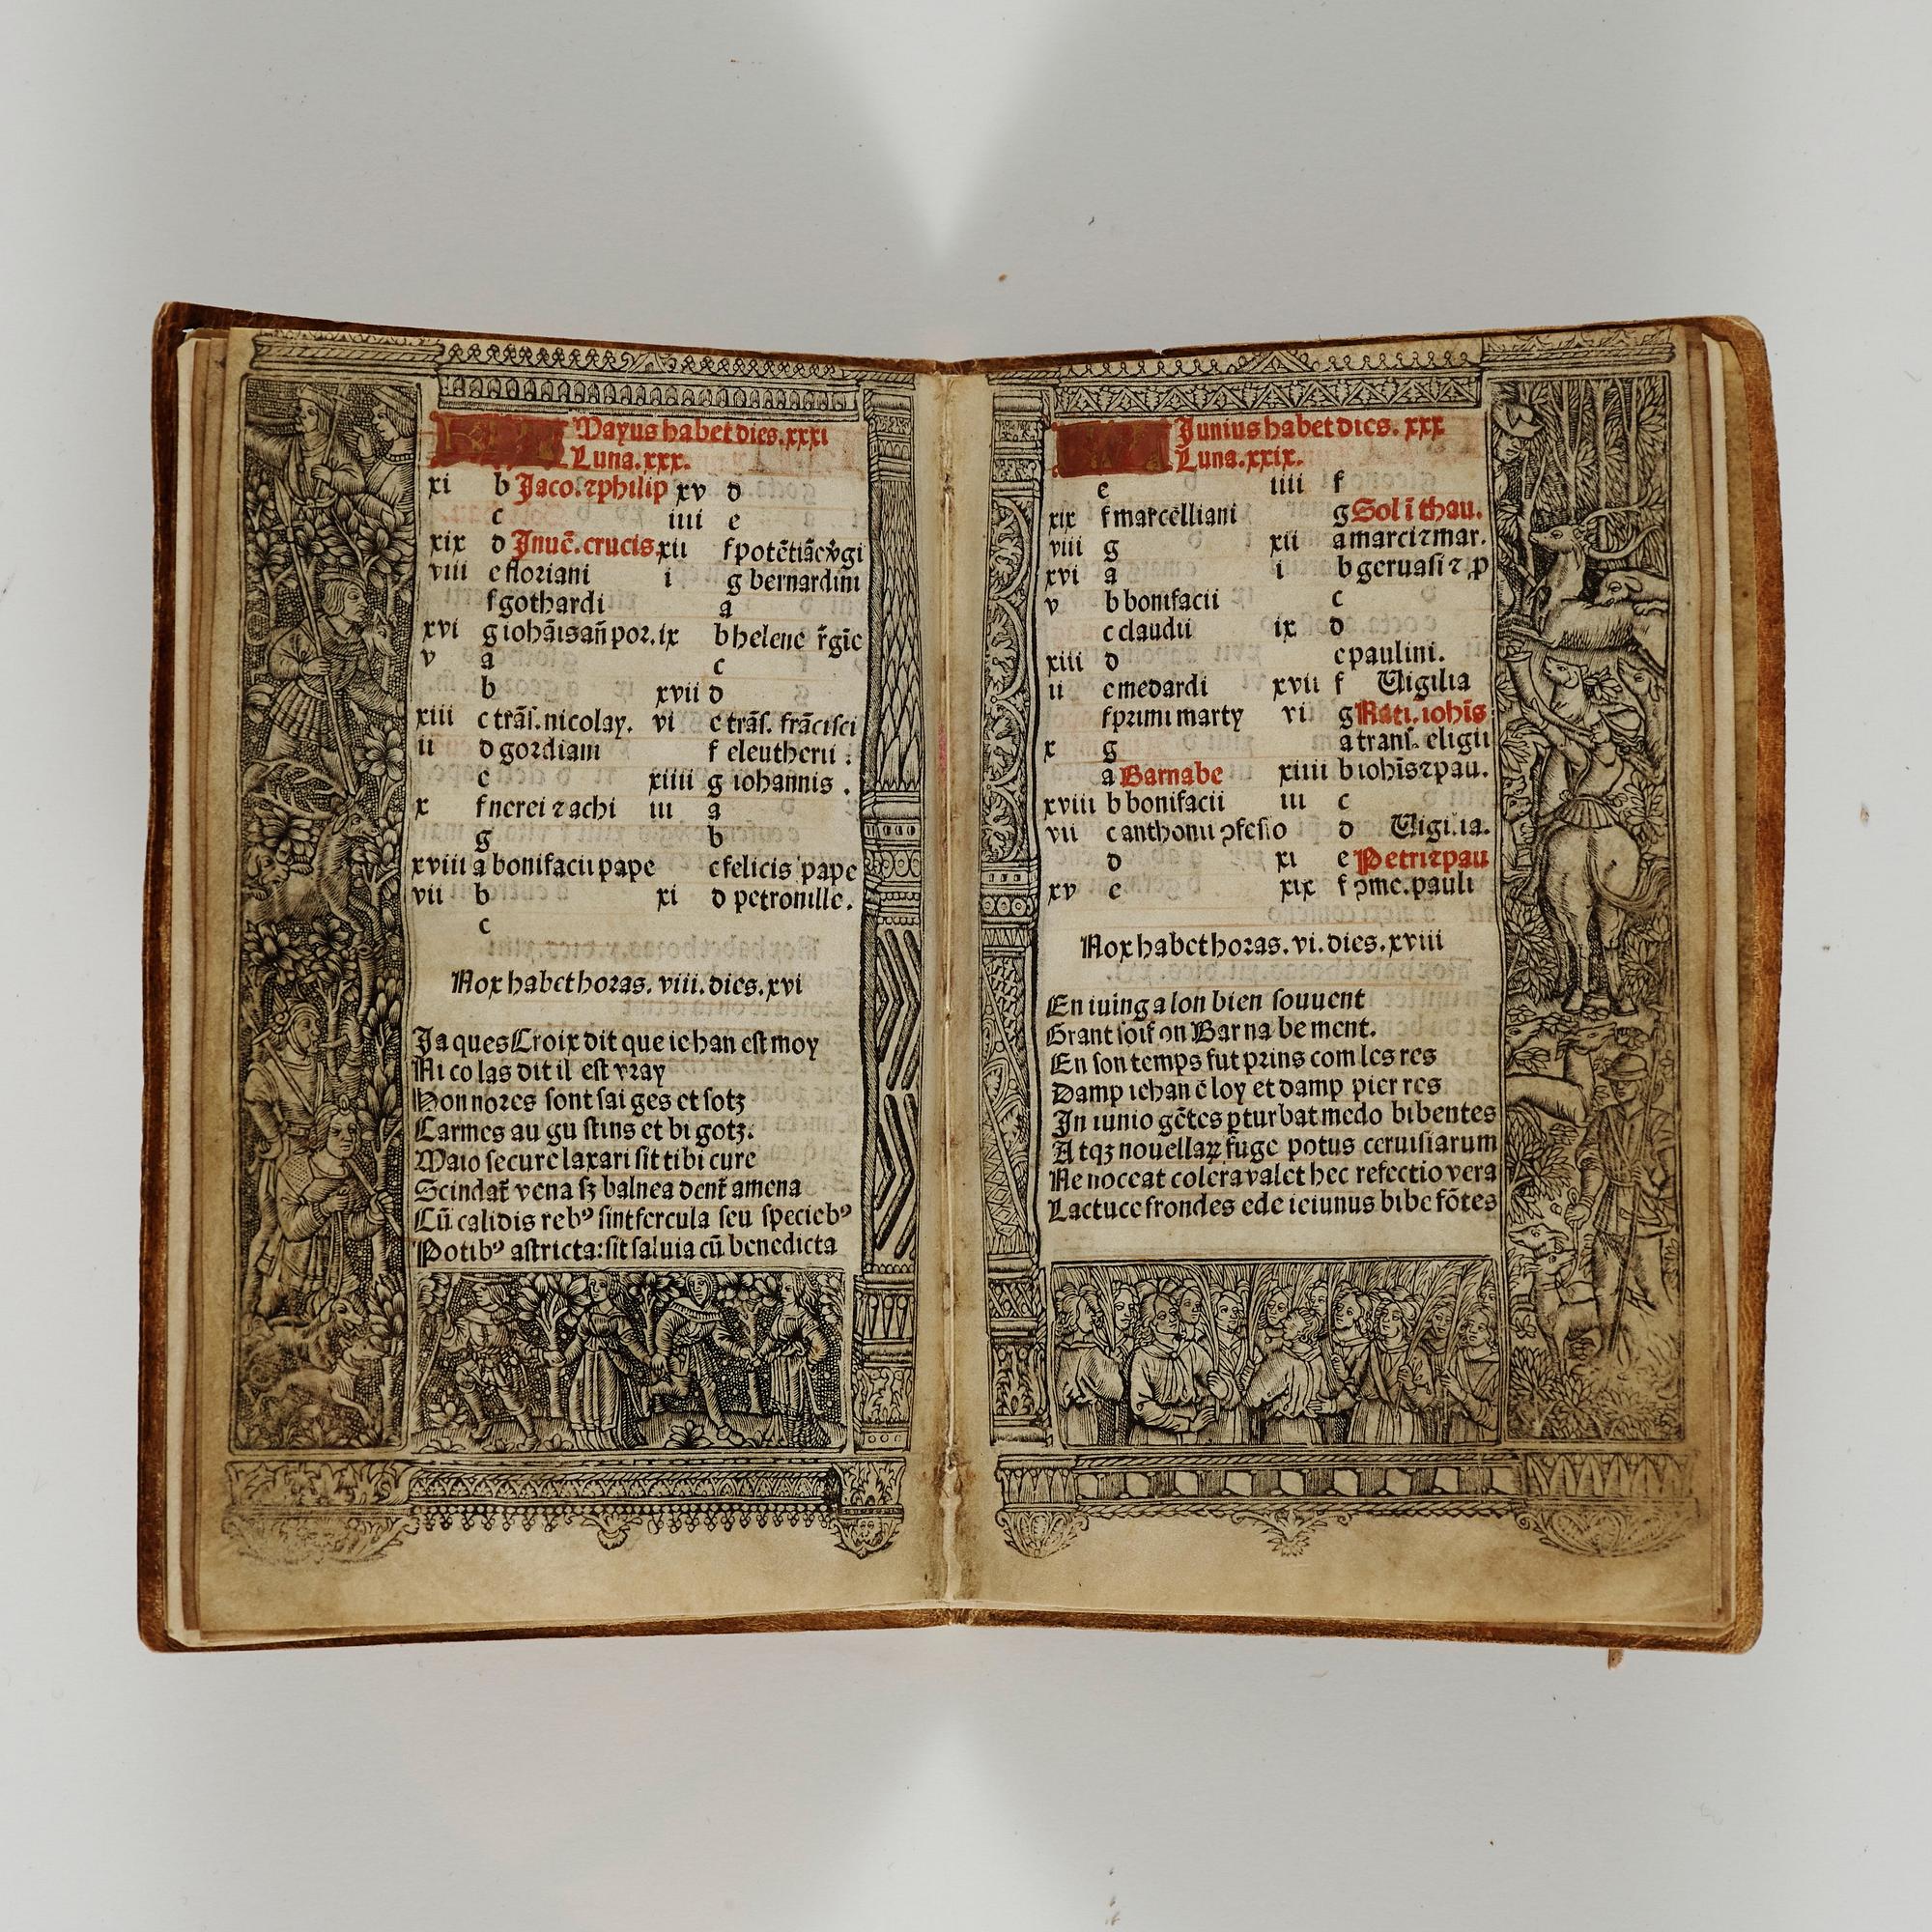 Mayus habet dies. xxxi
Luna. xxx.
xi b Jaco. ⁊ philip xv d
c iiii e
xix d Inuē. crucis. xii f potētiāe v̇gi
viii e floriani i g bernardini
f gothardi a
xvi g iohāis añ por. ix b helene r̄gīe
v a c
b xvii d
xiii c trāſ. nicolay. vi e trāſ. frāciſci
ii d gordiani f eleutherii :
e xiiii g iohannis .
x f nerei ⁊ achi iii a
g b
xviii a bonifacii pape c felicis pape
vii b xi d petronille.
c
Nox habet horas. viii. dies. xvi
Ja ques Croix dit que iehan eſt moy
Ni co las dit il eſt vray
Hon nores ſont ſai ges et ſotz
Carmes au gu ſtins et bi gotz.
Maio ſecure laxari ſit tibi cure
Scindat̄ vena ſꝫ balnea dent̄ amena
Cū calidis rebꝰ ſint fercula ſeu ſpeciebꝰ
Potibꝰ aſtricta: ſit ſaluia cū benedicta
Junius habet dies. xxx
Luna. xxix.
e iiii f
xix f marcelliani g Sol ī thau.
viii g xii a marci ⁊ mar.
xvi a i b geruaſi ⁊ p
v b bonifacii c
c claudii ix d
xiii d e paulini.
ii e medardi xvii f Vigilia
f primi marty vi g Nati. iohīs
x g a tranſ. eligii
a Barnabe xiiii b iohīs ⁊ pau.
xviii b bonifacii iii c
vii c anthonii ꝯfeſſo d Vigilia.
d xi e Petri ⁊ pau
xv e xix f ꝯme. pauli
Nox habet horas. vi. dies. xviii
En iuing a lon bien ſouuent
Grant ſoif on Bar na be ment.
En ſon temps fut prins com les res
Damp iehan ē loy et damp pier res
In iunio gētes ꝑturbat medo bibentes
Atqꝫ nouellaꝝ fuge potus ceruiſiarum
Ne noceat colera valet hec refectio vera
Lactuce frondes ede ieiunus bibe fōtes